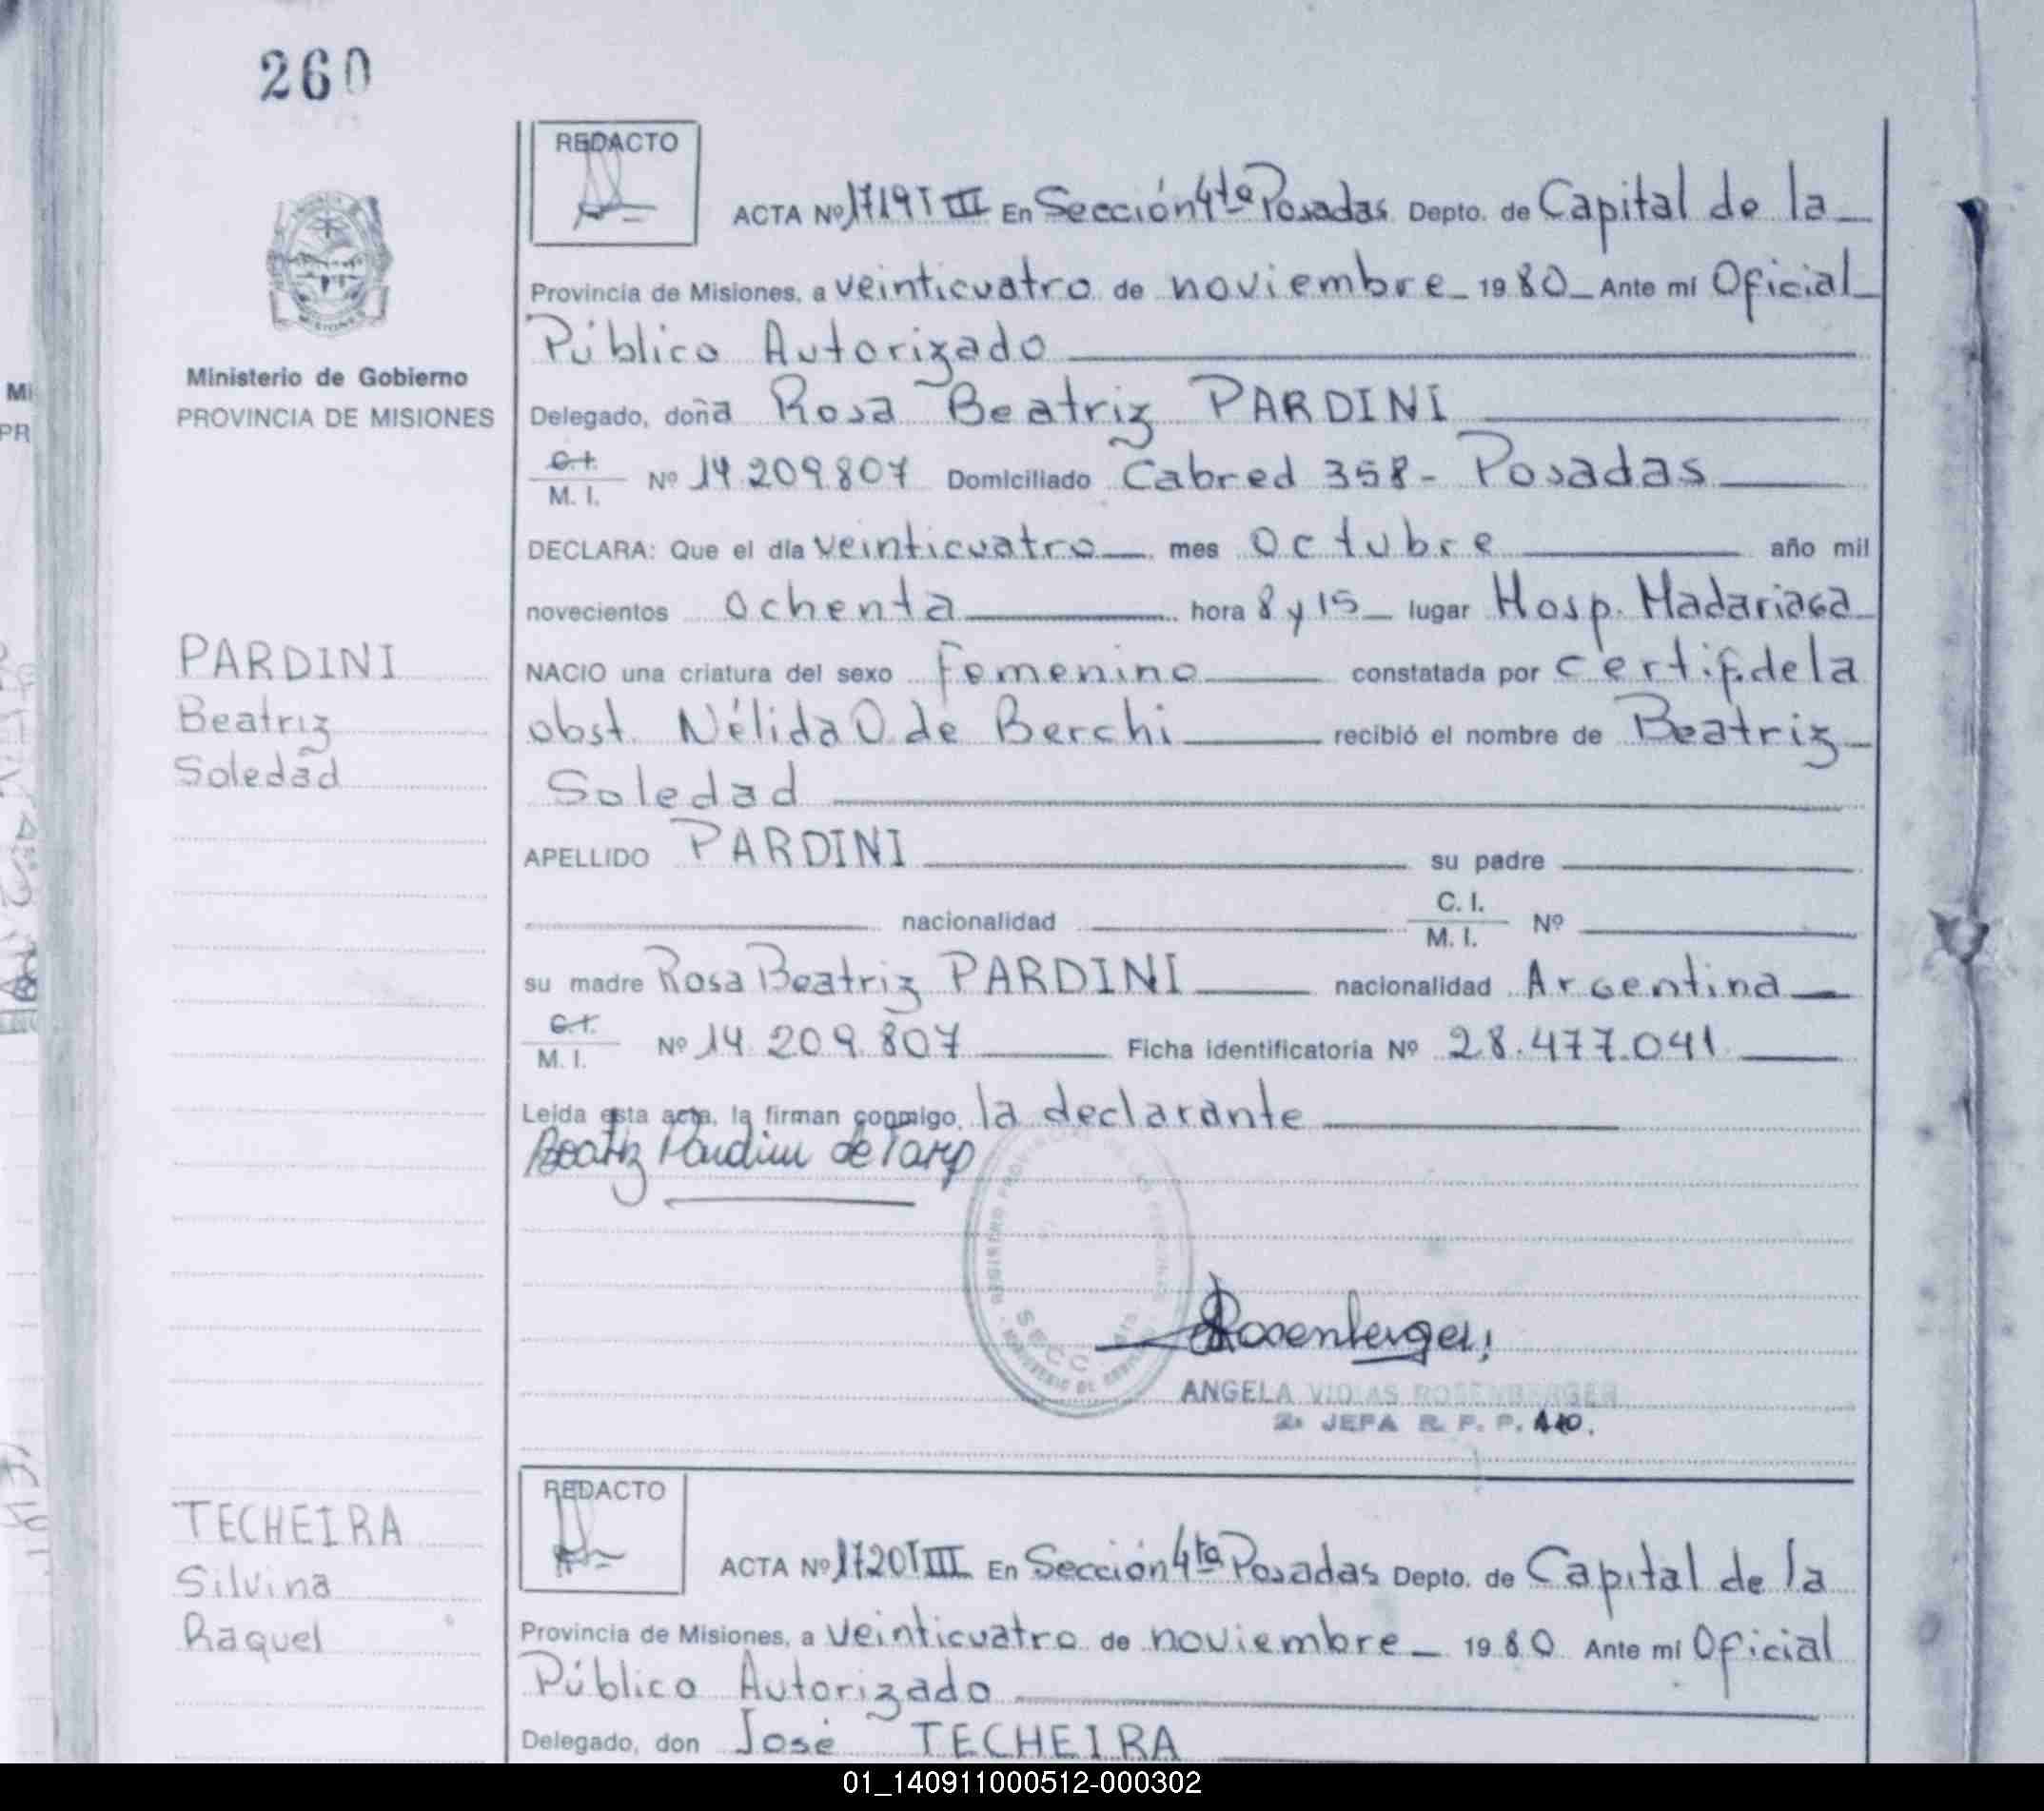 260
REDACTO
ACTA Nº 1719 T III En Sección 4ta Posadas Depto. de Capital de la
Provincia de Misiones, a veinticuatro de noviembre 1980 Ante mi Oficial
Público Autorizado
Ministerio de Gobierno
PROVINCIA DE MISIONES
Delegado, doña Rosa Beatriz PARDINI
C.I.
M. I. Nº 14.209.807 Domiciliado Cabred 358 - Posadas
DECLARA: Que el día veinticuatro mes octubre año mil
novecientos ochenta hora 8 y 15 lugar Hosp. Madariaga
PARDINI
Beatriz
Soledad
NACIO una criatura del sexo femenino constatada por certif. de la
obst. Nélida O. de Berchi recibió el nombre de Beatriz
Soledad
APELLIDO PARDINI su padre
nacionalidad C. I.
M. I. Nº
su madre Rosa Beatriz PARDINI nacionalidad Argentina
C.I.
M. I. Nº 14.209.807 Ficha identificatoria Nº 28.477.041
Leída esta acta, la firman conmigo, la declarante
Beatriz Pardini de
SECC. 4ta
Rosenberger
ANGELA VIOLAS ROSENBERGER
2ª JEFA R. P. P.
TECHEIRA
Silvina
Raquel
REDACTO
ACTA Nº 1720 T III En Sección 4ta Posadas Depto. de Capital de la
Provincia de Misiones, a veinticuatro de noviembre 1980 Ante mi Oficial
Público Autorizado
Delegado, don José TECHEIRA
01_140911000512-000302